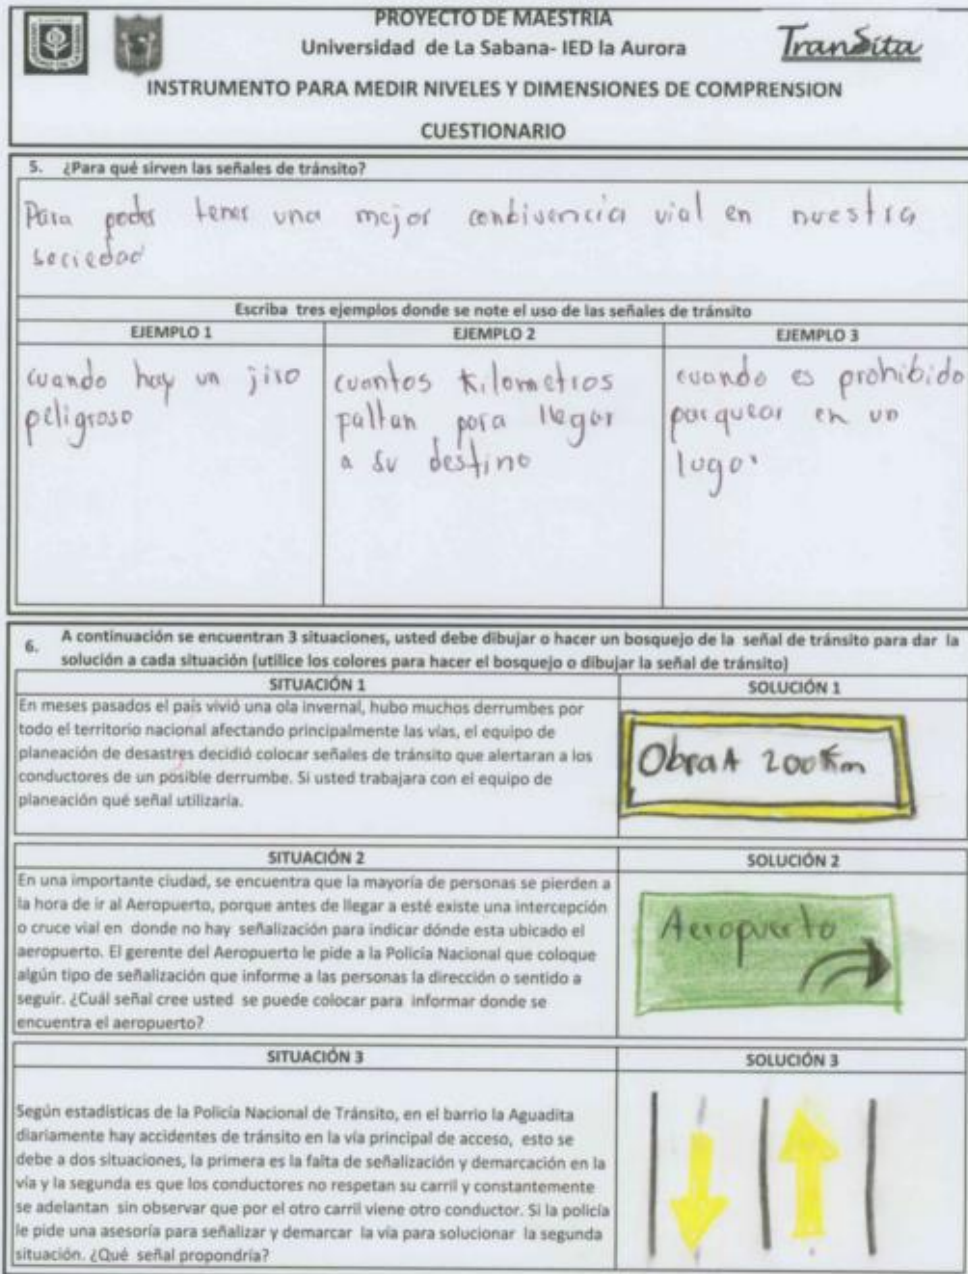 PROYECTO DE MAESTRIA
Universidad de La Sabana- IED la Aurora
TranSita
INSTRUMENTO PARA MEDIR NIVELES Y DIMENSIONES DE COMPRENSION
CUESTIONARIO
5. ¿Para qué sirven las señales de tránsito?
Para poder tener una mejor conbivencia vial en nuestra
sociedad
Escriba tres ejemplos donde se note el uso de las señales de tránsito
EJEMPLO 1
cuando hay un jiro
peligroso
EJEMPLO 2
cuantos Kilometros
faltan para llegar
a su destino
EJEMPLO 3
cuando es prohibido
parquear en un
lugar
6. A continuación se encuentran 3 situaciones, usted debe dibujar o hacer un bosquejo de la señal de tránsito para dar la
solución a cada situación (utilice los colores para hacer el bosquejo o dibujar la señal de tránsito)
SITUACIÓN 1
En meses pasados el país vivió una ola invernal, hubo muchos derrumbes por
todo el territorio nacional afectando principalmente las vías, el equipo de
planeación de desastres decidió colocar señales de tránsito que alertaran a los
conductores de un posible derrumbe. Si usted trabajara con el equipo de
planeación qué señal utilizaría.
SOLUCIÓN 1
Obra A 200 Km
SITUACIÓN 2
En una importante ciudad, se encuentra que la mayoría de personas se pierden a
la hora de ir al Aeropuerto, porque antes de llegar a esté existe una intercepción
o cruce vial en donde no hay señalización para indicar dónde esta ubicado el
aeropuerto. El gerente del Aeropuerto le pide a la Policía Nacional que coloque
algún tipo de señalización que informe a las personas la dirección o sentido a
seguir. ¿Cuál señal cree usted se puede colocar para informar donde se
encuentra el aeropuerto?
SOLUCIÓN 2
Aeropuerto
SITUACIÓN 3
Según estadísticas de la Policía Nacional de Tránsito, en el barrio la Aguadita
diariamente hay accidentes de tránsito en la vía principal de acceso, esto se
debe a dos situaciones, la primera es la falta de señalización y demarcación en la
vía y la segunda es que los conductores no respetan su carril y constantemente
se adelantan sin observar que por el otro carril viene otro conductor. Si la policía
le pide una asesoría para señalizar y demarcar la vía para solucionar la segunda
situación. ¿Qué señal propondría?
SOLUCIÓN 3